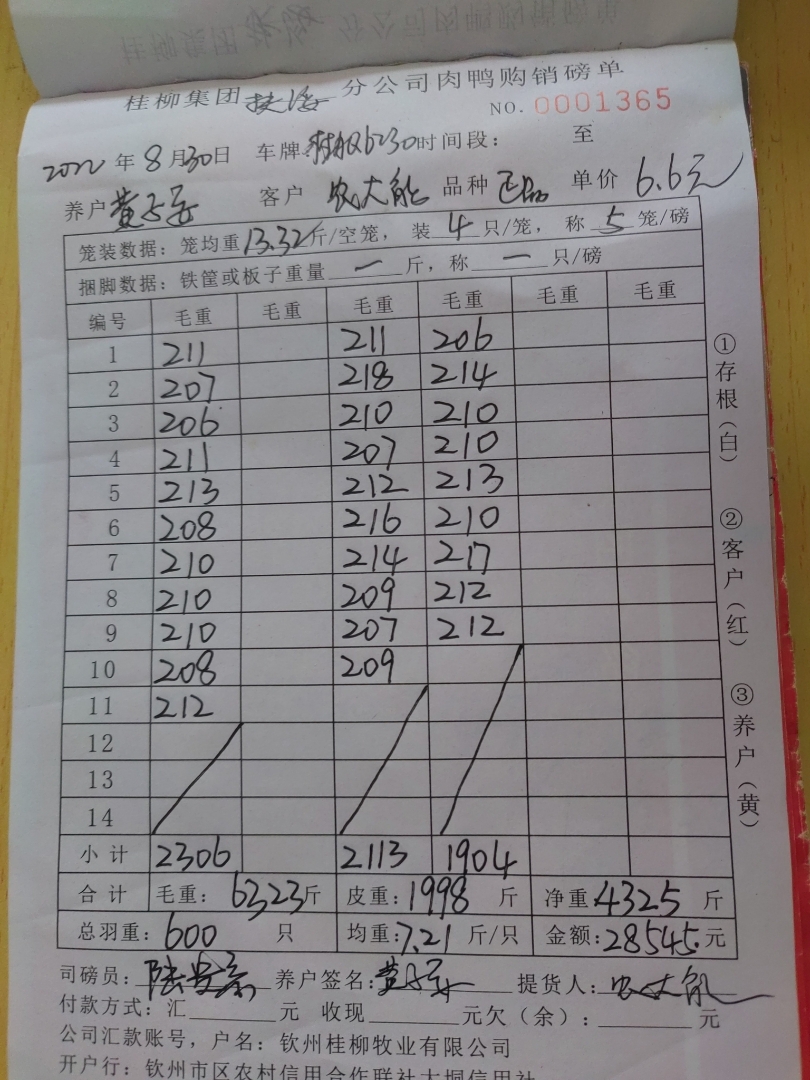 桂柳集团 分公司肉鸭购销磅单
NO. 0001365
2022年8月30日 车牌:6230时间段: 至
养户 客户 农大能 品种 正品 单价 6.6元
笼装数据:笼均重13.32斤/空笼,装4只/笼,称5笼/磅
捆脚数据:铁筐或板子重量一斤,称一只/磅
编号 毛重 毛重 毛重 毛重 毛重 毛重
1 211 211 206
2 207 218 214
3 206 210 210
4 211 207 210
5 213 212 213
6 208 216 210
7 210 214 217
8 210 209 212
9 210 207 212
10 208 209
11 212
12
13
14
小计 2306 2113 1904
合计 毛重:6323斤 皮重:1998斤 净重:4325斤
总羽重:600只 均重:7.21斤/只 金额:28545.元
司磅员: 养户签名: 提货人:农大能
付款方式:汇 元 收现 元欠(余): 元
公司汇款账号,户名:钦州桂柳牧业有限公司
开户行:钦州市区农村信用合作联社大垌信用社
①存根(白) ②客户(红) ③养户(黄)